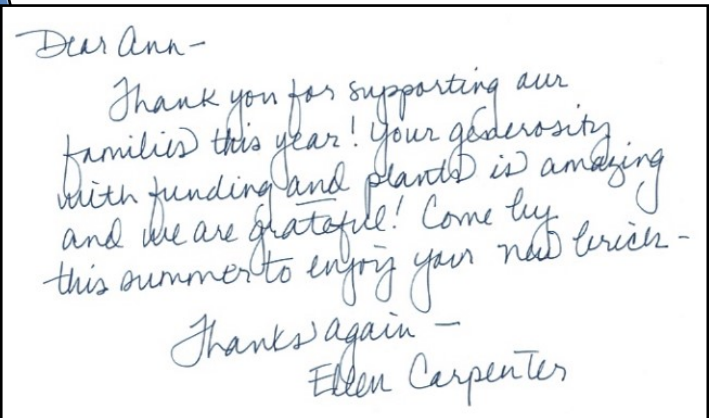 Dear Ann-
Thank you for supporting our
families this year! Your generosity
with funding and plants is amazing
and we are grateful! Come by
this summer to enjoy your new brick-
Thanks again -
Ellen Carpenter